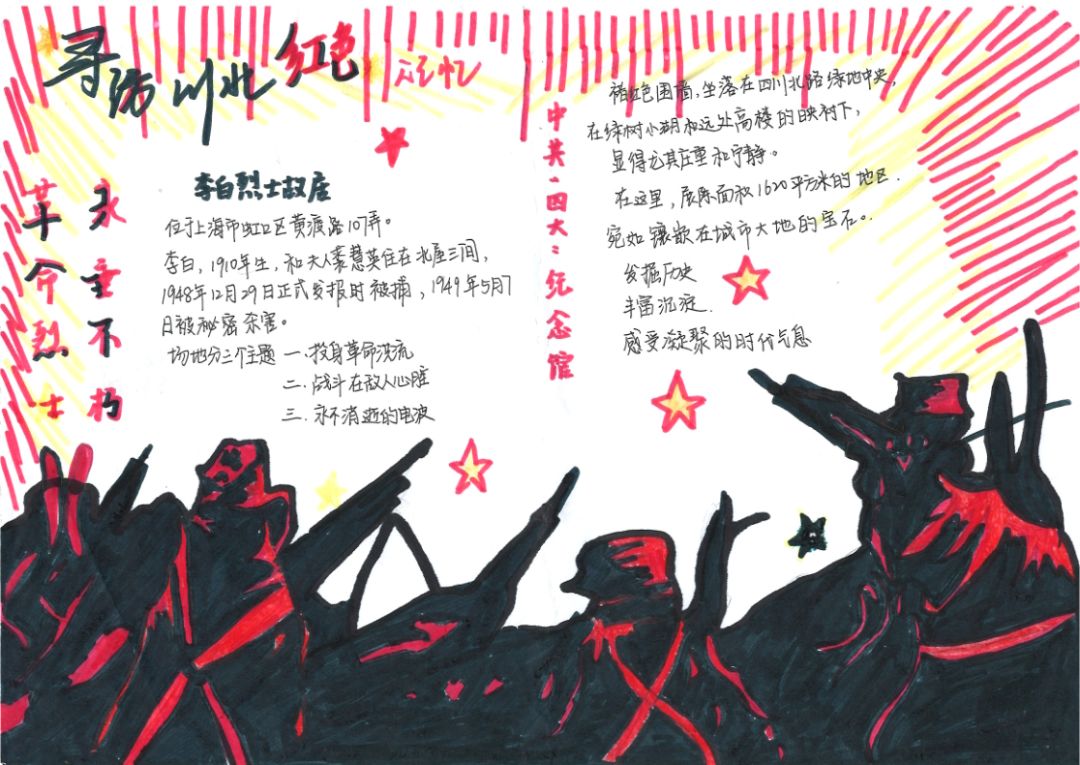 寻访川北红色记忆
革命烈士
永垂不朽
李白烈士故居
位于上海市虹口区黄渡路107弄。
李白,1910年生,和夫人裘慧英住在北座三间,
1948年12月29日正式发报时被捕,1949年5月7
日被秘密杀害。
场地分三个主题 一.投身革命洪流
二.战斗在敌人心脏
三.永不消逝的电波
中共"四大"纪念馆
褚红色围墙,坐落在四川北路绿地中央,
在绿树小湖和远处高楼的映衬下,
显得尤其庄重和宁静。
在这里,展陈面积1620平方米的地区.
宛如镶嵌在城市大地的宝石。
发掘历史
丰富沉淀.
感受凝聚的时代气息